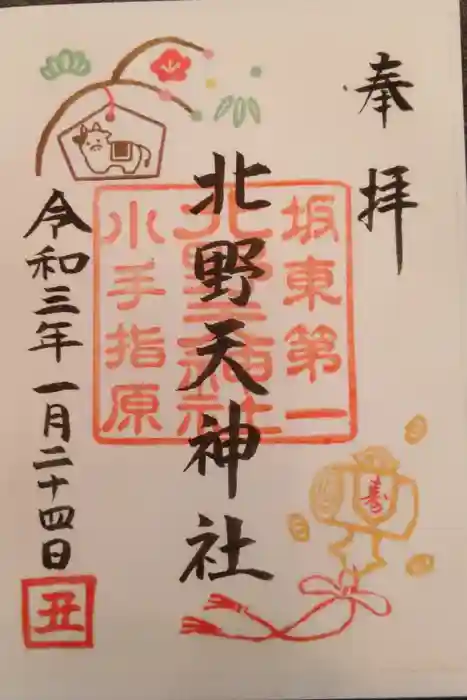 奉拝
坂東第一
北野天神社
小手指原
北野天神社
令和三年一月二十四日
丑
寿